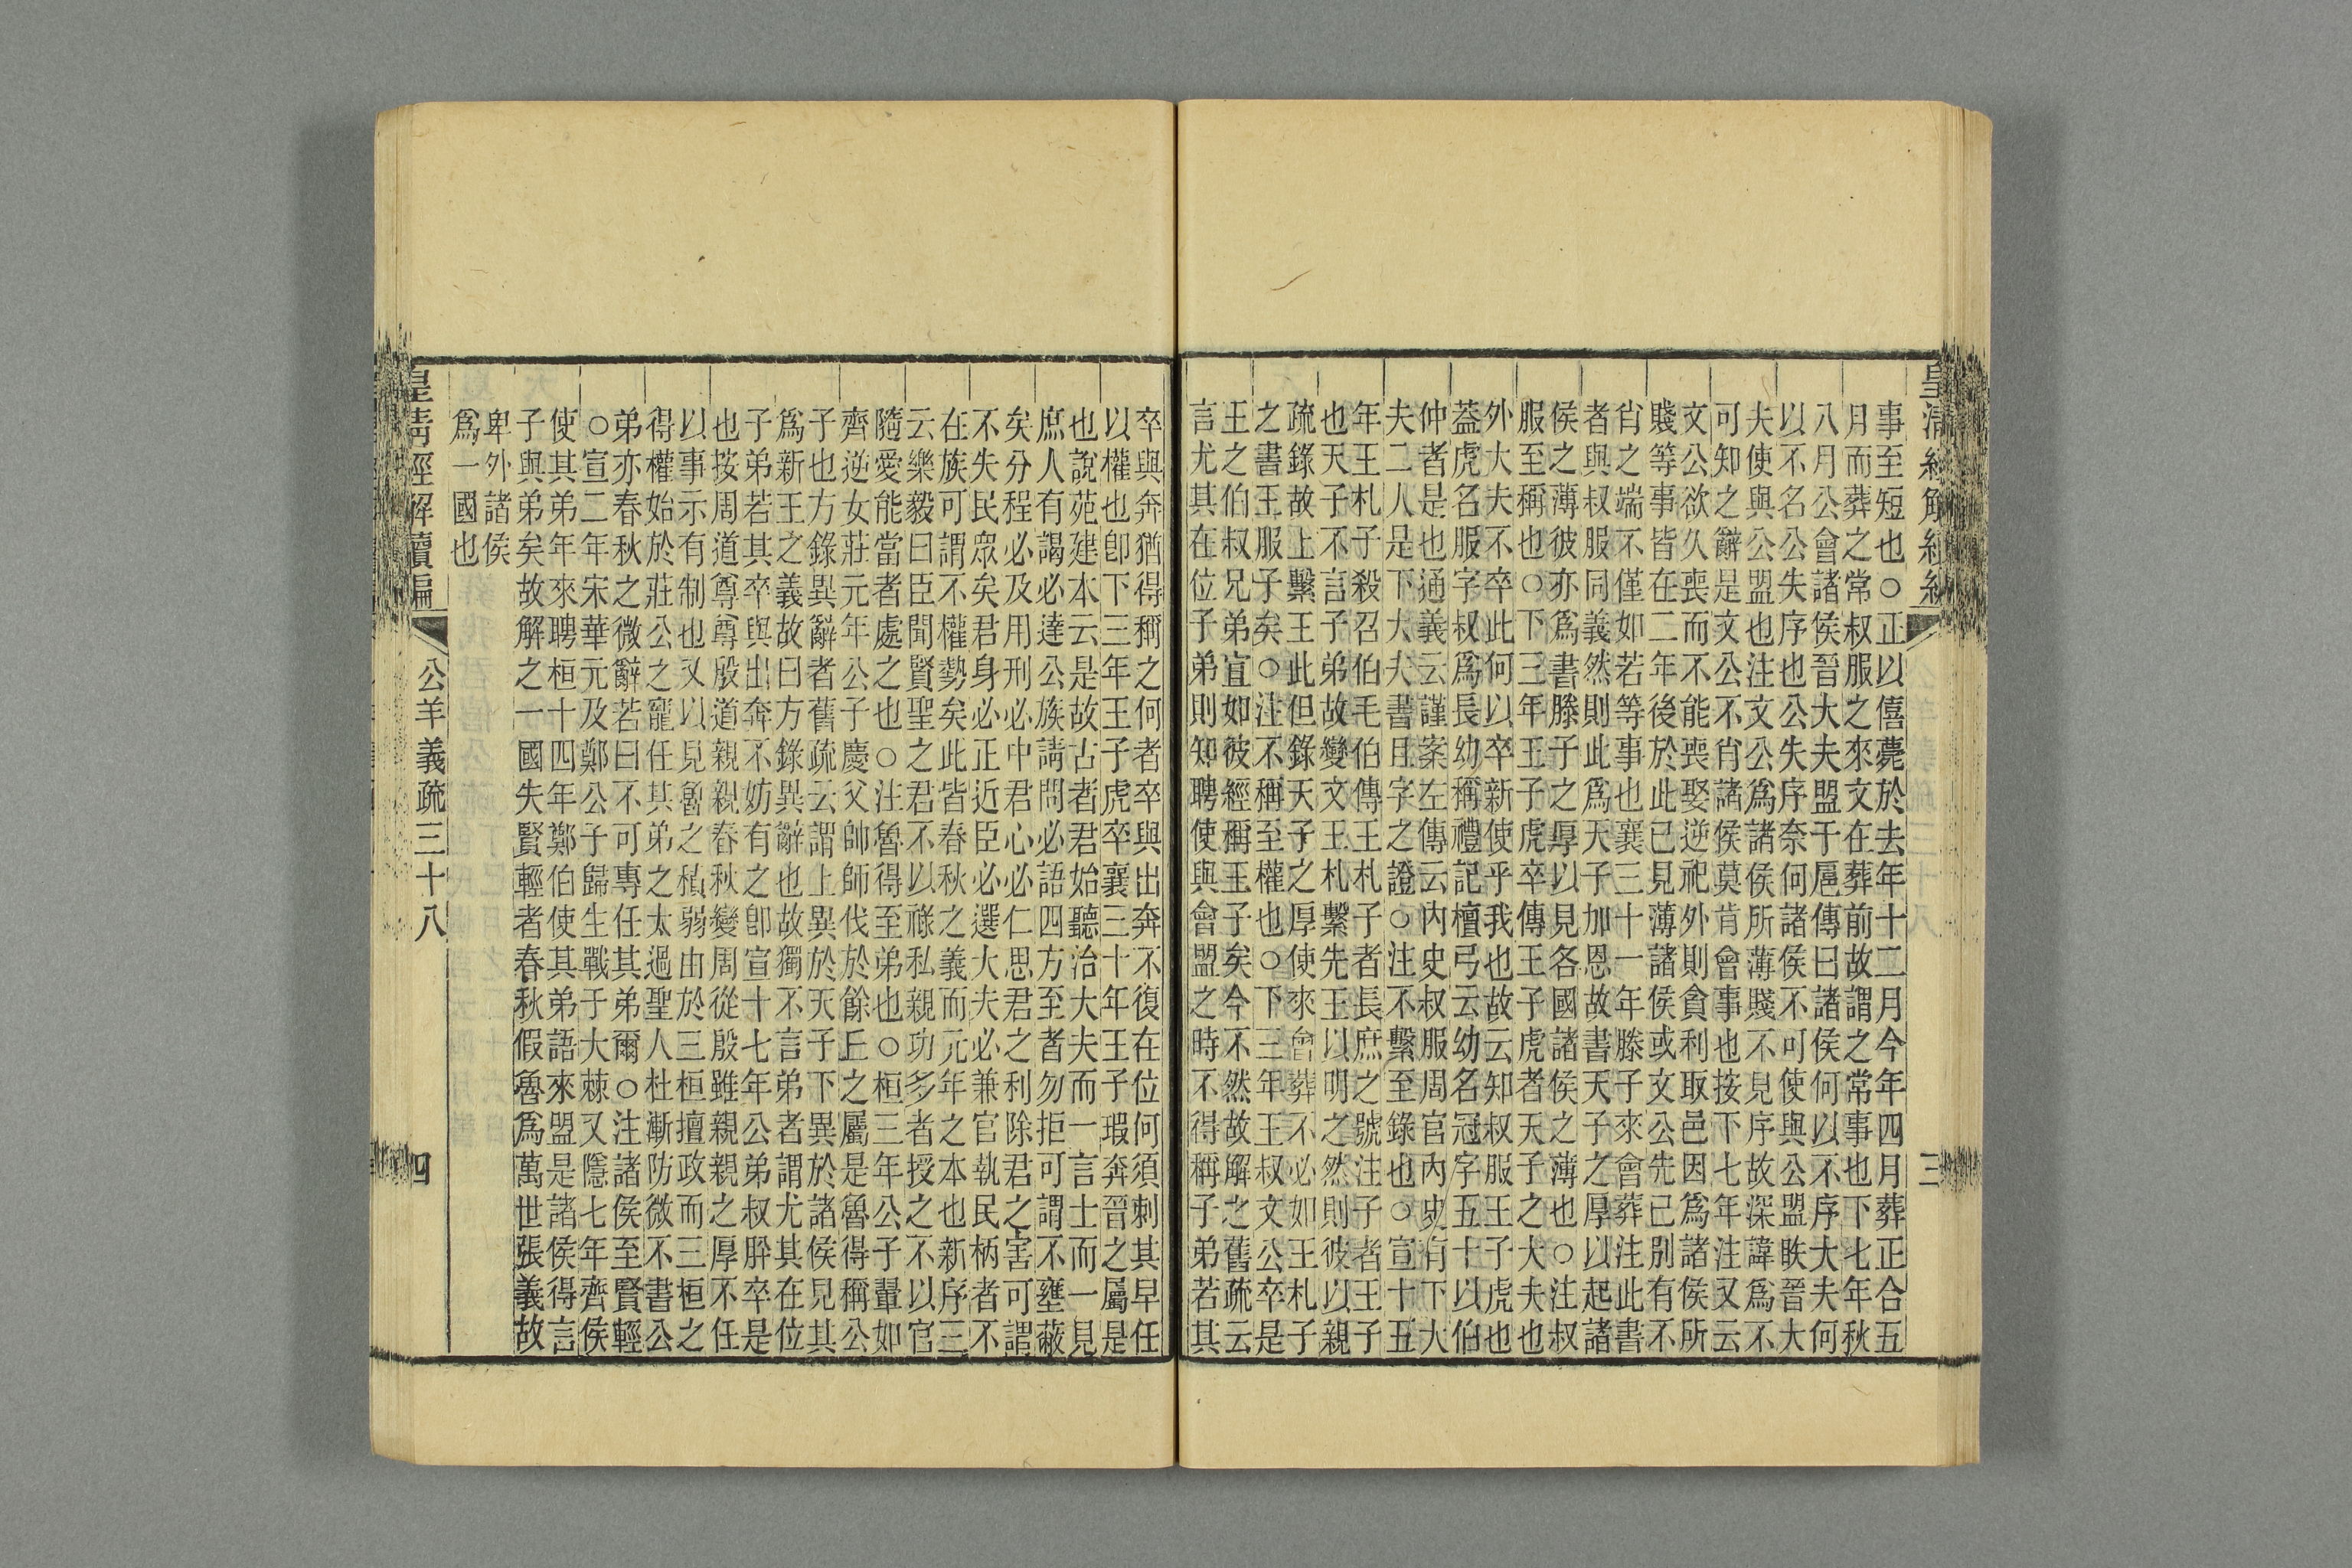 皇清經解續編
三
事至短也○正以僖薨於去年十二月今年四月葬正合五
月而葬之常叔服之來文在葬前故謂之常事也下七年秋
八月公會諸侯晉大夫盟于扈傳曰諸侯何以不序大夫何
以不名公失序也公失序奈何諸侯不可使與公盟眣晉大
夫使與公盟也注文公爲諸侯所薄賤不見序故深諱爲不
可知之辭是文公不肖諸侯莫肯會事也按下七年注又云
文公欲久喪而不能喪娶逆祀外則貪利取邑因爲諸侯所
賤等事皆在二年後於此已見薄諸侯或文公先已別有不
肖之端不僅如若等事也襄三十一年滕子來會葬注此書
者與叔服同義然則此爲天子加恩故書天子之厚以起諸
侯之薄彼亦爲書滕子之厚以見各國諸侯之薄也○注叔
服至稱也○下三年王子虎卒傳王子虎者天子之大夫也
外大夫不卒此何以卒新使乎我也故云知叔服王子虎也
葢虎名服字叔爲長幼稱禮記檀弓云幼名冠字五十以伯
仲者是也通義云謹案左傳云內史叔服周官內史有下大
夫二人是下大夫書且字之證○注不繫至錄也○宣十五
年王札子殺召伯毛伯傳王札子者長庶之號注子者王子
也天子不言子弟故變文王札繫先王以明之然則彼以親
疏錄故上繫王此但錄天子之厚使來會葬不必如王札子
之書王服子矣○注不稱至權也○下三年王叔文公卒是
王之伯叔兄弟宜如彼經稱王子矣今不然故解之舊疏云
言尤其在位子弟則知聘使與會盟之時不得稱子弟若其
卒與奔猶得稱之何者卒與出奔不復在位何須刺其早任
以權也卽下三年王子虎卒襄三十年王子瑕奔晉之屬是
也說苑建本云是故古者君始聽治大夫而一言士而一見
庶人有謁必達公族請問必語四方至者勿拒可謂不壅蔽
矣分程必及用刑必中君心必仁思君之利除君之害可謂
不失民眾矣君身必正近臣必選大夫必兼官執民柄者不
在族可謂不權勢矣此皆春秋之義而元年之本也新序三
云樂毅曰臣聞賢聖之君不以祿私親功多者授之不以官
隨愛能當者處之也○注魯得至弟也○桓三年公子翬如
齊逆女莊元年公子慶父帥師伐於餘丘之屬是魯得稱公
子也方錄異辭者舊疏云謂上異於天子下異於諸侯見其
爲新王之義故曰方錄異辭也故獨不言弟者謂尤其在位
子弟若其卒與出奔不妨有之卽宣十七年公弟叔肸卒是
也按周道尊尊殷道親親春秋變周從殷雖親親之厚不任
以事示有制也又以見魯之積弱由於三桓擅政而三桓之
得權始於莊公之寵任其弟之太過聖人杜漸防微不書公
弟亦春秋之微辭若曰不可專任其弟爾○注諸侯至賢輕
○宣二年宋華元及鄭公子歸生戰于大棘又隱七年齊侯
使其弟年來聘桓十四年鄭伯使其弟語來盟是諸侯得言
子與弟矣故解之一國失賢輕者春秋假魯爲萬世張義故
卑外諸侯
爲一國也
皇清經解續編
公羊義疏三十八
四